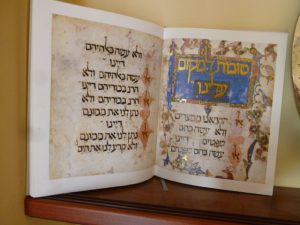 טובות למקום
עלינו
הוציאנו ממצרים
ולא עשה בהם
שפטים דיינו
עשה בהם שפטים
ולא עשה באלהיהם
דיינו
עשה באלהיהם ולא
הרג בכוריהם דיינו
הרג בכוריהם ולא
נתן לנו את ממונם
דיינו
נתן לנו את ממונם
ולא קרע לנו את הים